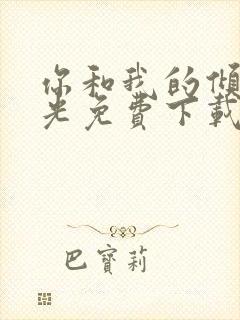 你和我的倾
光免費下載
巴寶莉